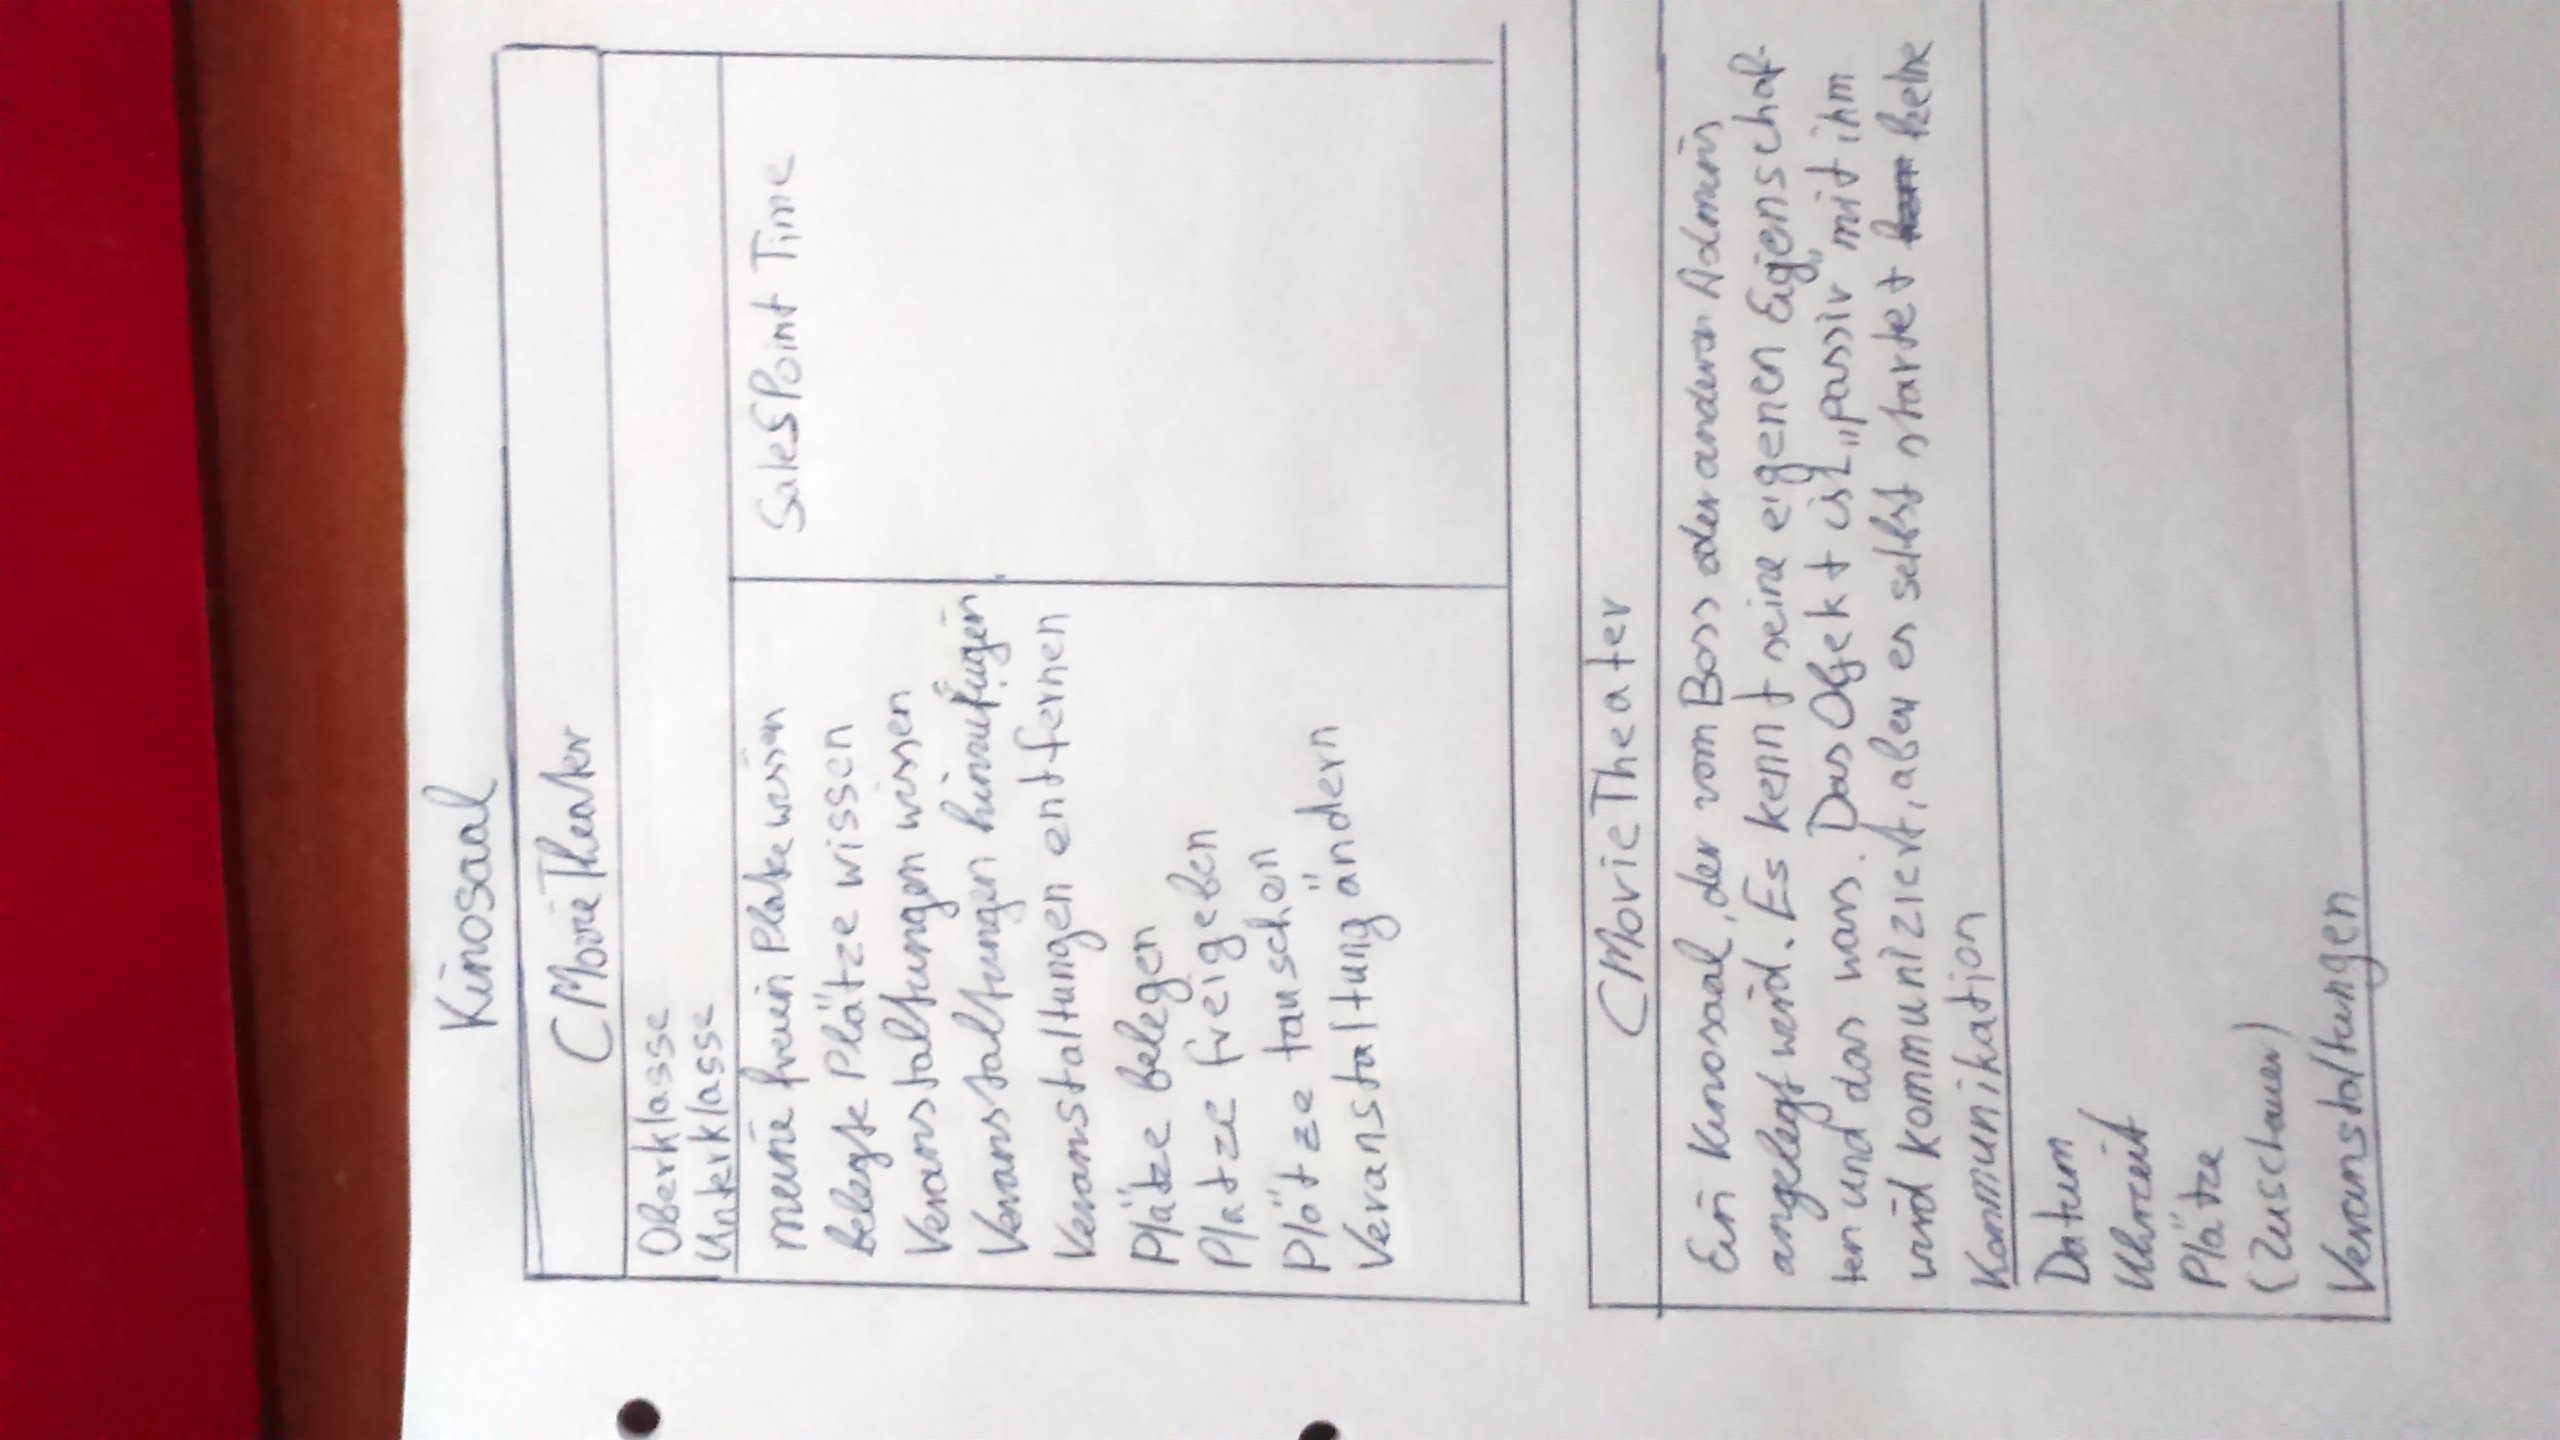 Kinosaal
CMovieTheater
Oberklasse
Unterklasse
meine freien Plätze wissen
SalesPoint Time
belegte Plätze wissen
Veranstaltungen wissen
Veranstaltungen hinzufügen
Veranstaltungen entfernen
Plätze belegen
Platze freigeben
Plätze tauschen
Veranstaltung ändern
CMovieTheater
Ein Kinosaal, der vom Boss oder anderen Admins
angelegt wird. Es kennt seine eigenen Eigenschaf-
ten und das wars. Das Objekt ist „passiv" mit ihm
wird kommuniziert, aber es selbst startet keine
Kommunikation
Datum
Uhrzeit
Plätze
(Zuschauer)
Veranstaltungen